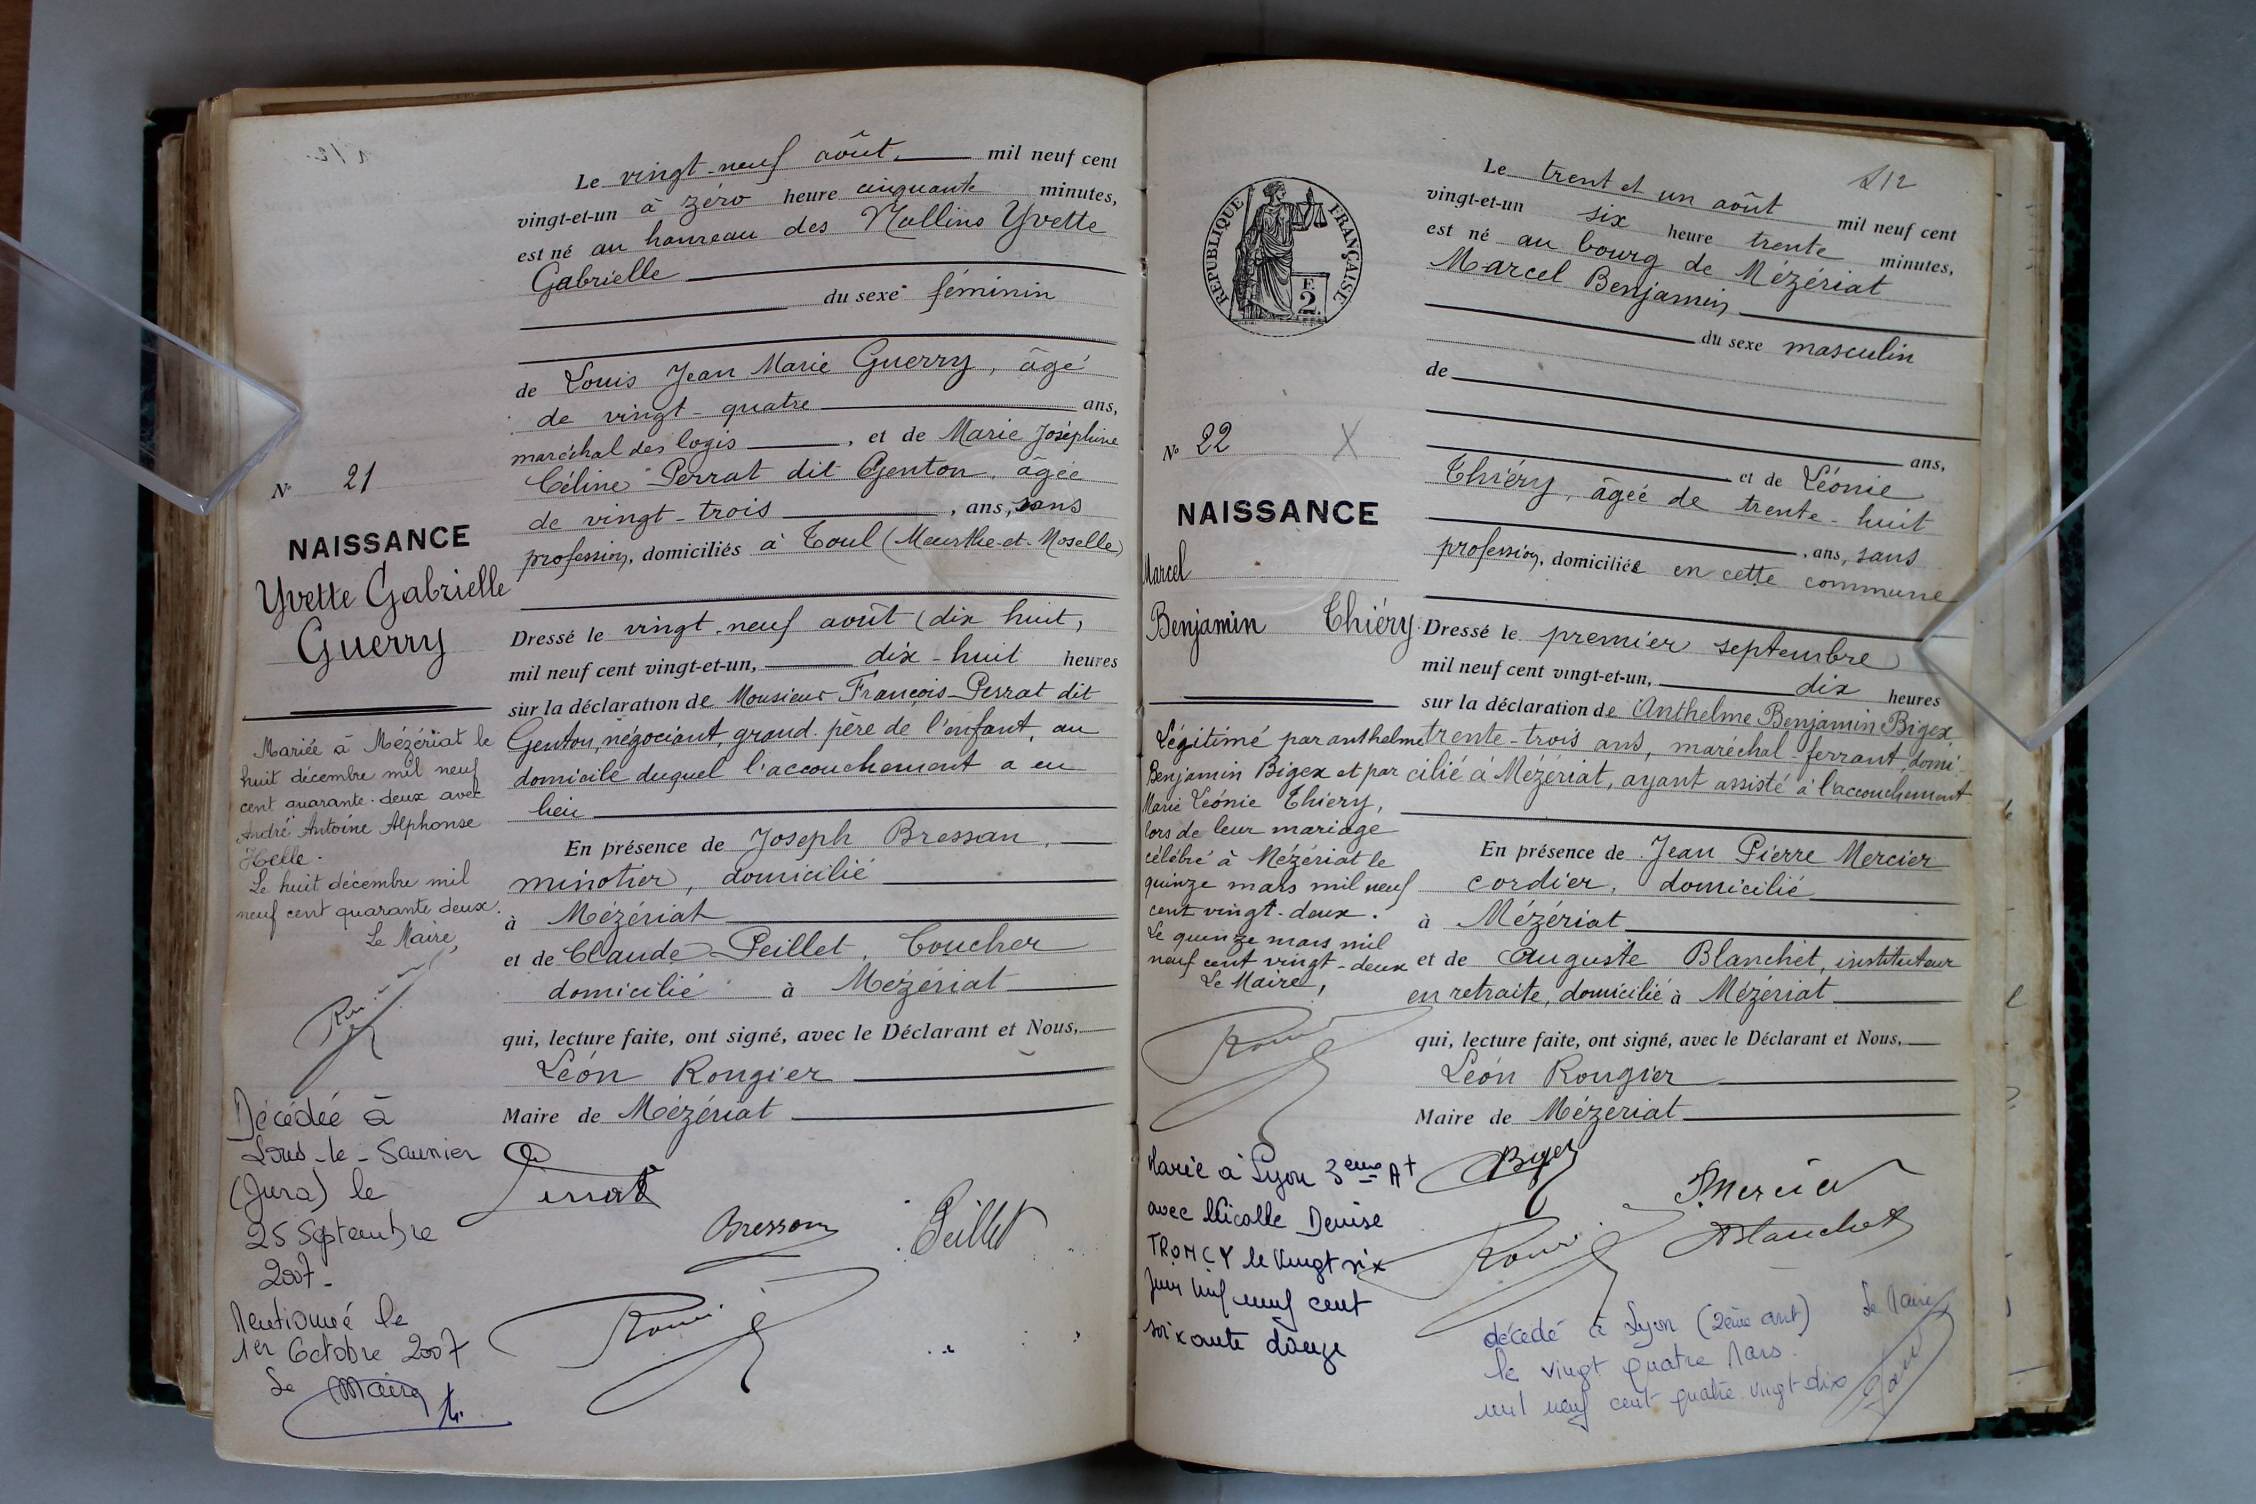 Le vingt-neuf août, mil neuf cent
vingt-et-un à zéro heure cinquante minutes,
est né au hameau des Mollins Yvette
Gabrielle
du sexe féminin
de Louis Jean Marie Guerry, âgé
de vingt-quatre ans,
maréchal des logis, et de Marie Joséphine
Céline Perrat dit Genton, âgée
de vingt-trois, ans, sans
profession, domiciliés à Toul (Meurthe-et-Moselle)
N° 21
NAISSANCE
Yvette Gabrielle
Guerry
Dressé le vingt-neuf août (dix huit,
mil neuf cent vingt-et-un, dix-huit heures
sur la déclaration de Monsieur François Perrat dit
Genton, négociant, grand-père de l'enfant, au
domicile duquel l'accouchement a eu
lieu
En présence de Joseph Bressan,
minotier, domicilié
à Mézériat
et de Claude Peillet, Boucher
domicilié à Mézériat
qui, lecture faite, ont signé, avec le Déclarant et Nous,
Léon Rougier
Maire de Mézériat
Perrat
Bressan
Peillet
Mariée à Mézériat le
huit décembre mil neuf
cent quarante-deux avec
André Antoine Alphonse
Helle.
Le huit décembre mil
neuf cent quarante deux.
Le Maire,
Décédée à
Lons-le-Saunier
(Jura) le
25 Septembre
2007-
Mentionné le
1er Octobre 2007
Le Maire
212
Le trent et un août mil neuf cent
vingt-et-un six heure trente minutes,
est né au bourg de Mézériat
Marcel Benjamin
du sexe masculin
de
ans,
et de Léonie
Thiéry, âgée de trente-huit
, ans, sans
profession, domiciliée en cette commune
RÉPUBLIQUE FRANÇAISE
F.
2.
N° 22 X
NAISSANCE
Marcel
Benjamin Thiéry
Dressé le premier septembre
mil neuf cent vingt-et-un, dix heures
sur la déclaration de Anthelme Benjamin Bigex,
trente-trois ans, maréchal-ferrant, domi-
cilié à Mézériat, ayant assisté à l'accouchement
En présence de Jean Pierre Mercier
cordier, domicilié
à Mézériat
et de Auguste Blanchet, instituteur
en retraite, domicilié à Mézériat
qui, lecture faite, ont signé, avec le Déclarant et Nous,
Léon Rougier
Maire de Mézériat
Bigex
Mercier
Blanchet
Légitimé par anthelme
Benjamin Bigex et par
Marie Léonie Thiery,
lors de leur mariage
célébré à Mézériat le
quinze mars mil neuf
cent vingt-deux.
Le quinze mars mil
neuf cent vingt-deux
Le Maire,
Marié à Lyon 3eme At
avec Nicolle Denise
TRONCY le vingt six
Juin mil neuf cent
soixante douze
décédé à Lyon (2ème art)
le vingt quatre Mars
mil neuf cent quatre vingt dix
Le Maire